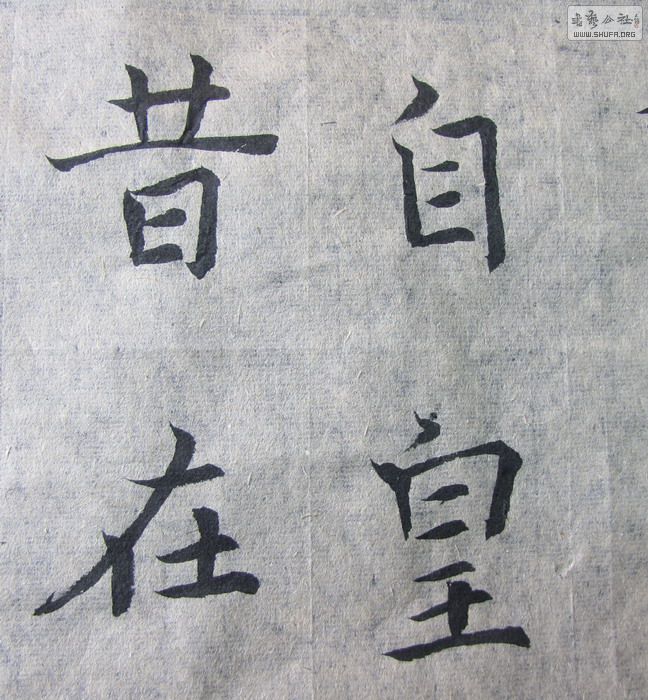 自皇
昔在
書藝公社
WWW.SHUFA.ORG